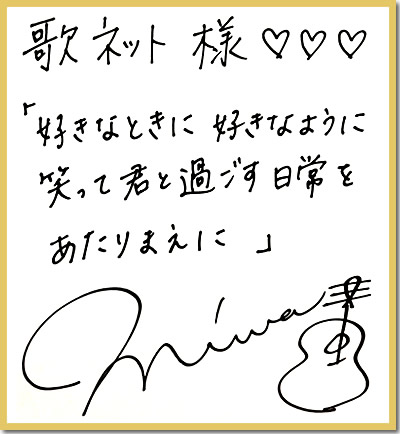 歌ネット 様 ♡♡♡
「好きなときに 好きなように
笑って君と過ごす日常を
あたりまえに 」
miwa